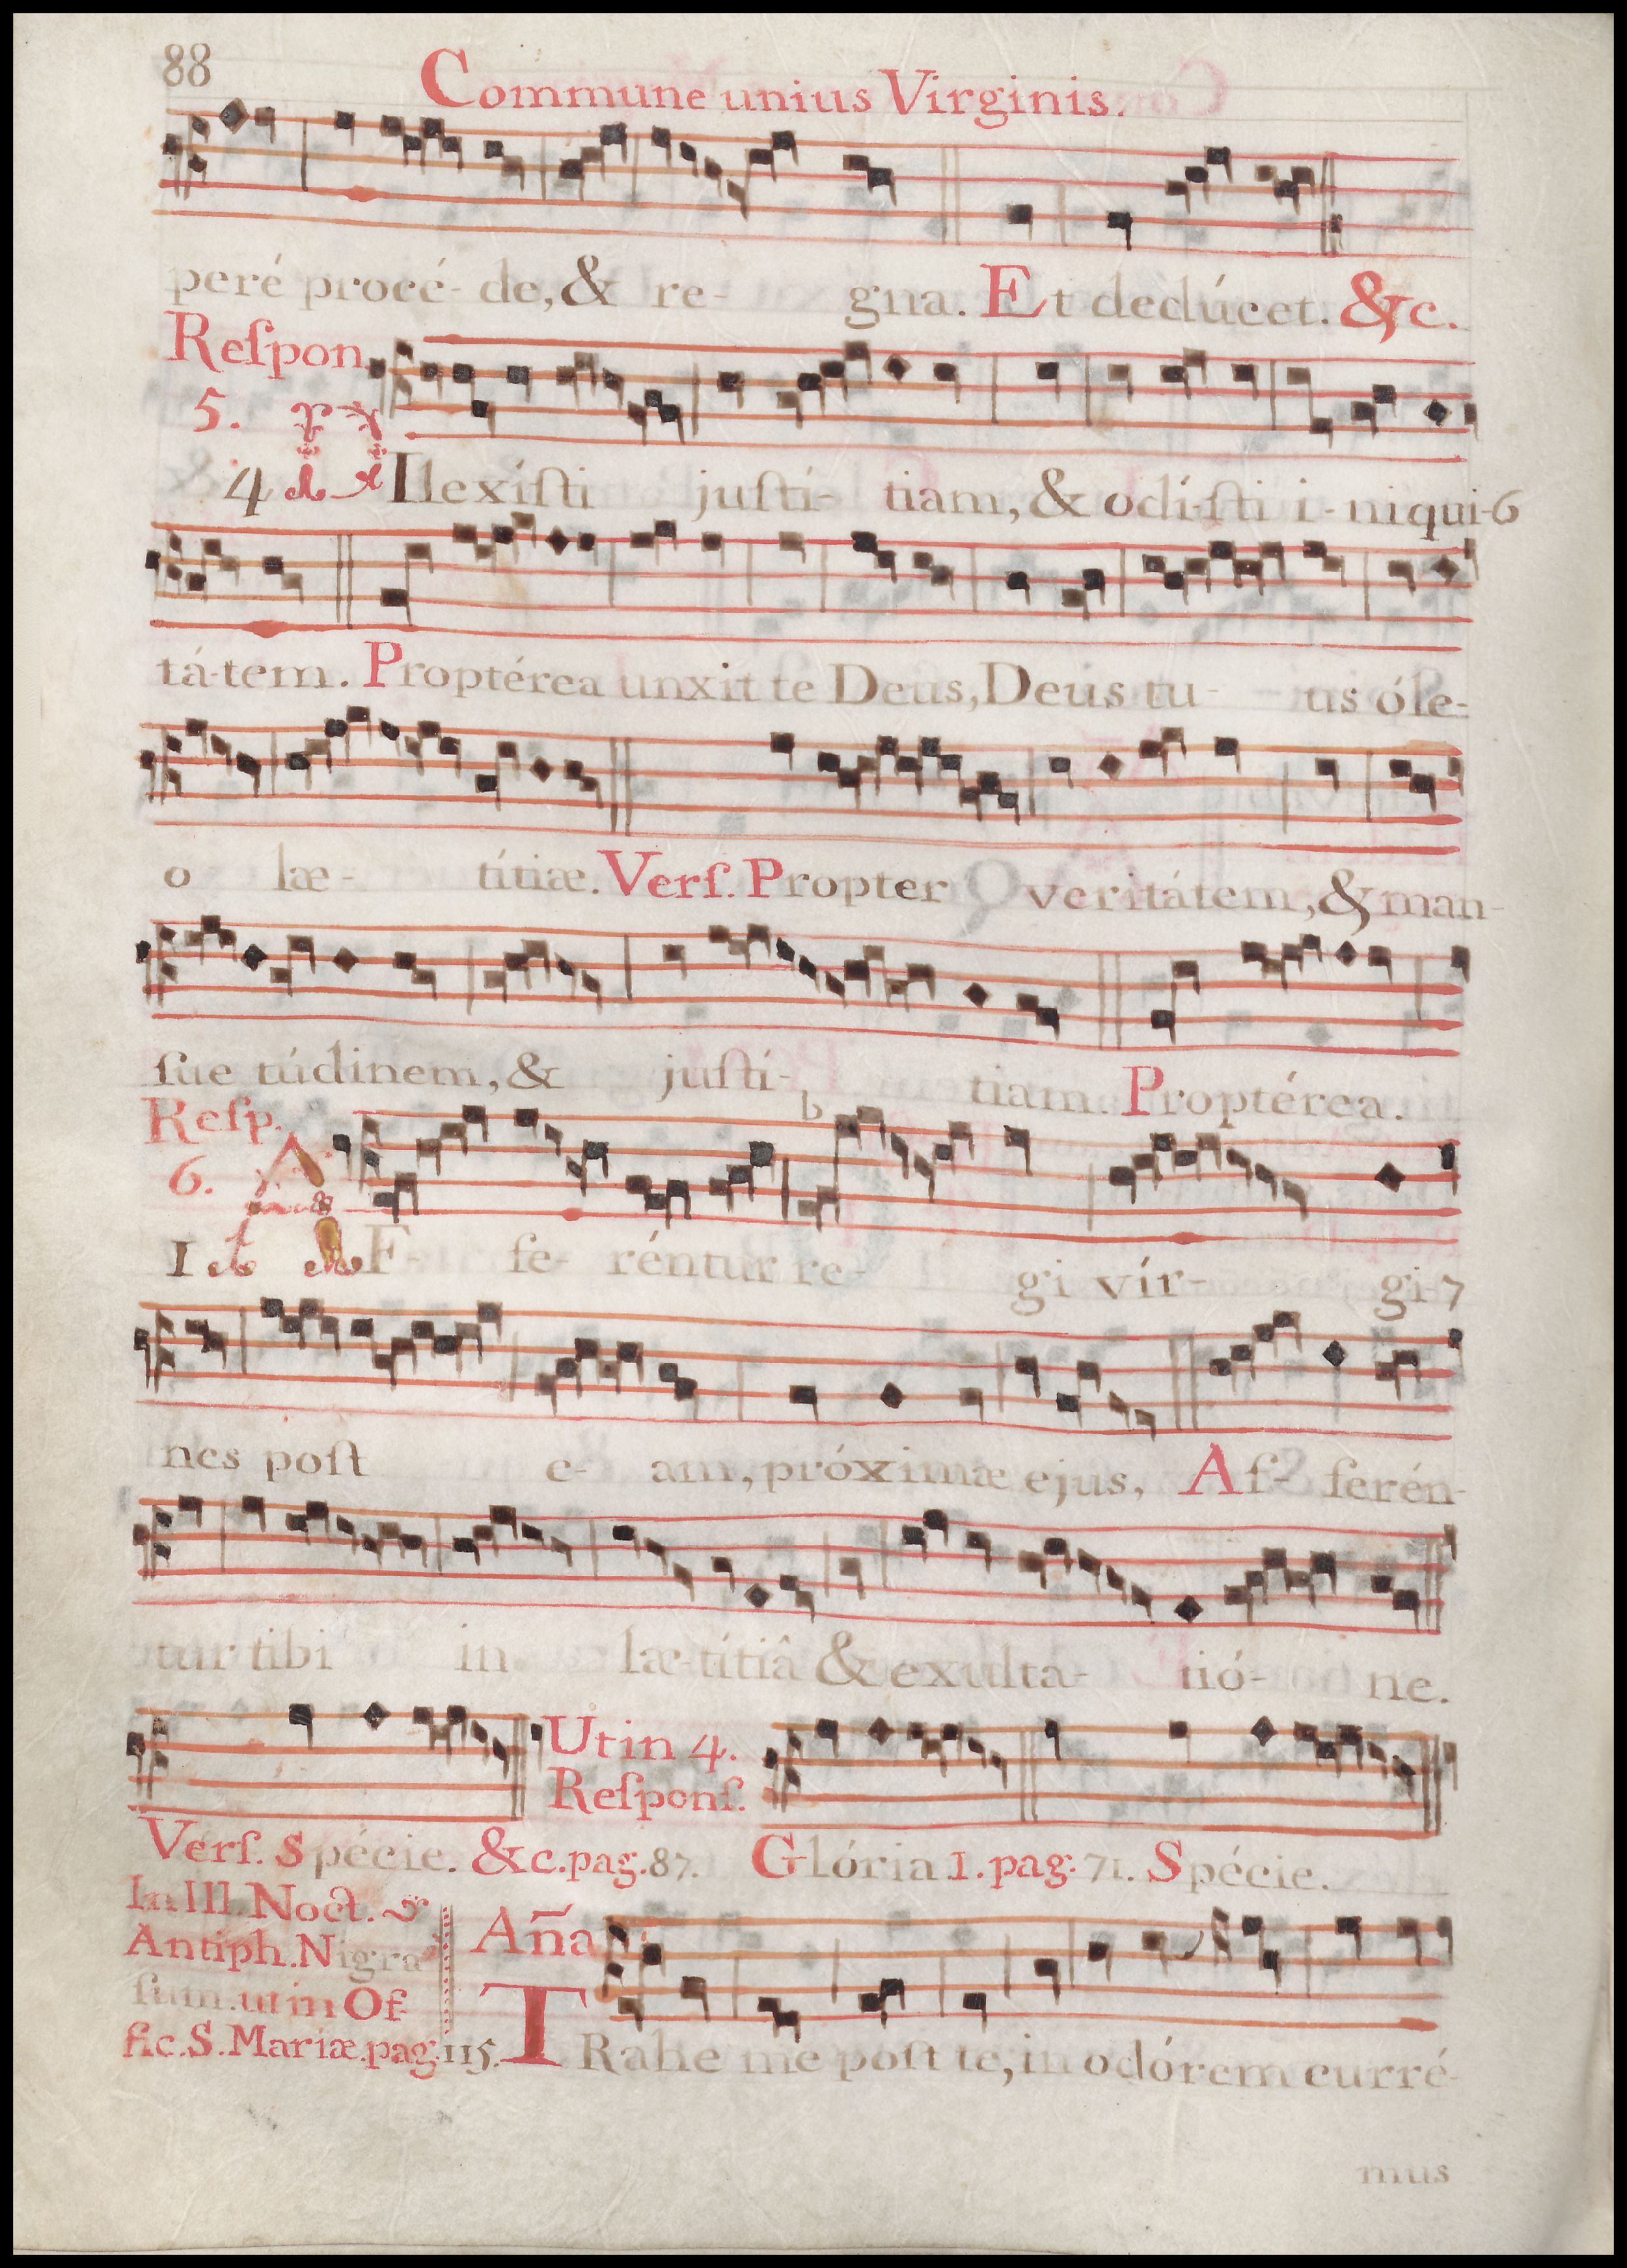 88
Commune unius Virginis.
peré procé- de, & re- gna. Et dedúcet. &c.
Reſpon.
5.
4 DIlexíſti juſtí- tiam, & odí-ſti i- niqui- 6
tá-tem. Proptérea unxit te Deus, Deus tu- us óle-
o læ- títiæ. Verſ. Propter veritátem, & man-
ſue túdinem, & juſtí- tiam. Proptérea.
Reſp.
6.
b
1 AF- fe- réntur re- gi vír- gi- 7
nes poſt e- am, próximæ ejus, Af- ferén-
tur tibi in læ-títiâ & exulta- tió- ne.
Ut in 4.
Reſponſ.
Verſ. Spécie. &c. pag. 87. Glória 1. pag. 71. Spécie.
In III. Noct.
Antiph. Nigra
ſum. ut in Of-
fic. S. Mariæ. pag. 115.
Aña
TRahe me poſt te, in odórem curré-
mus